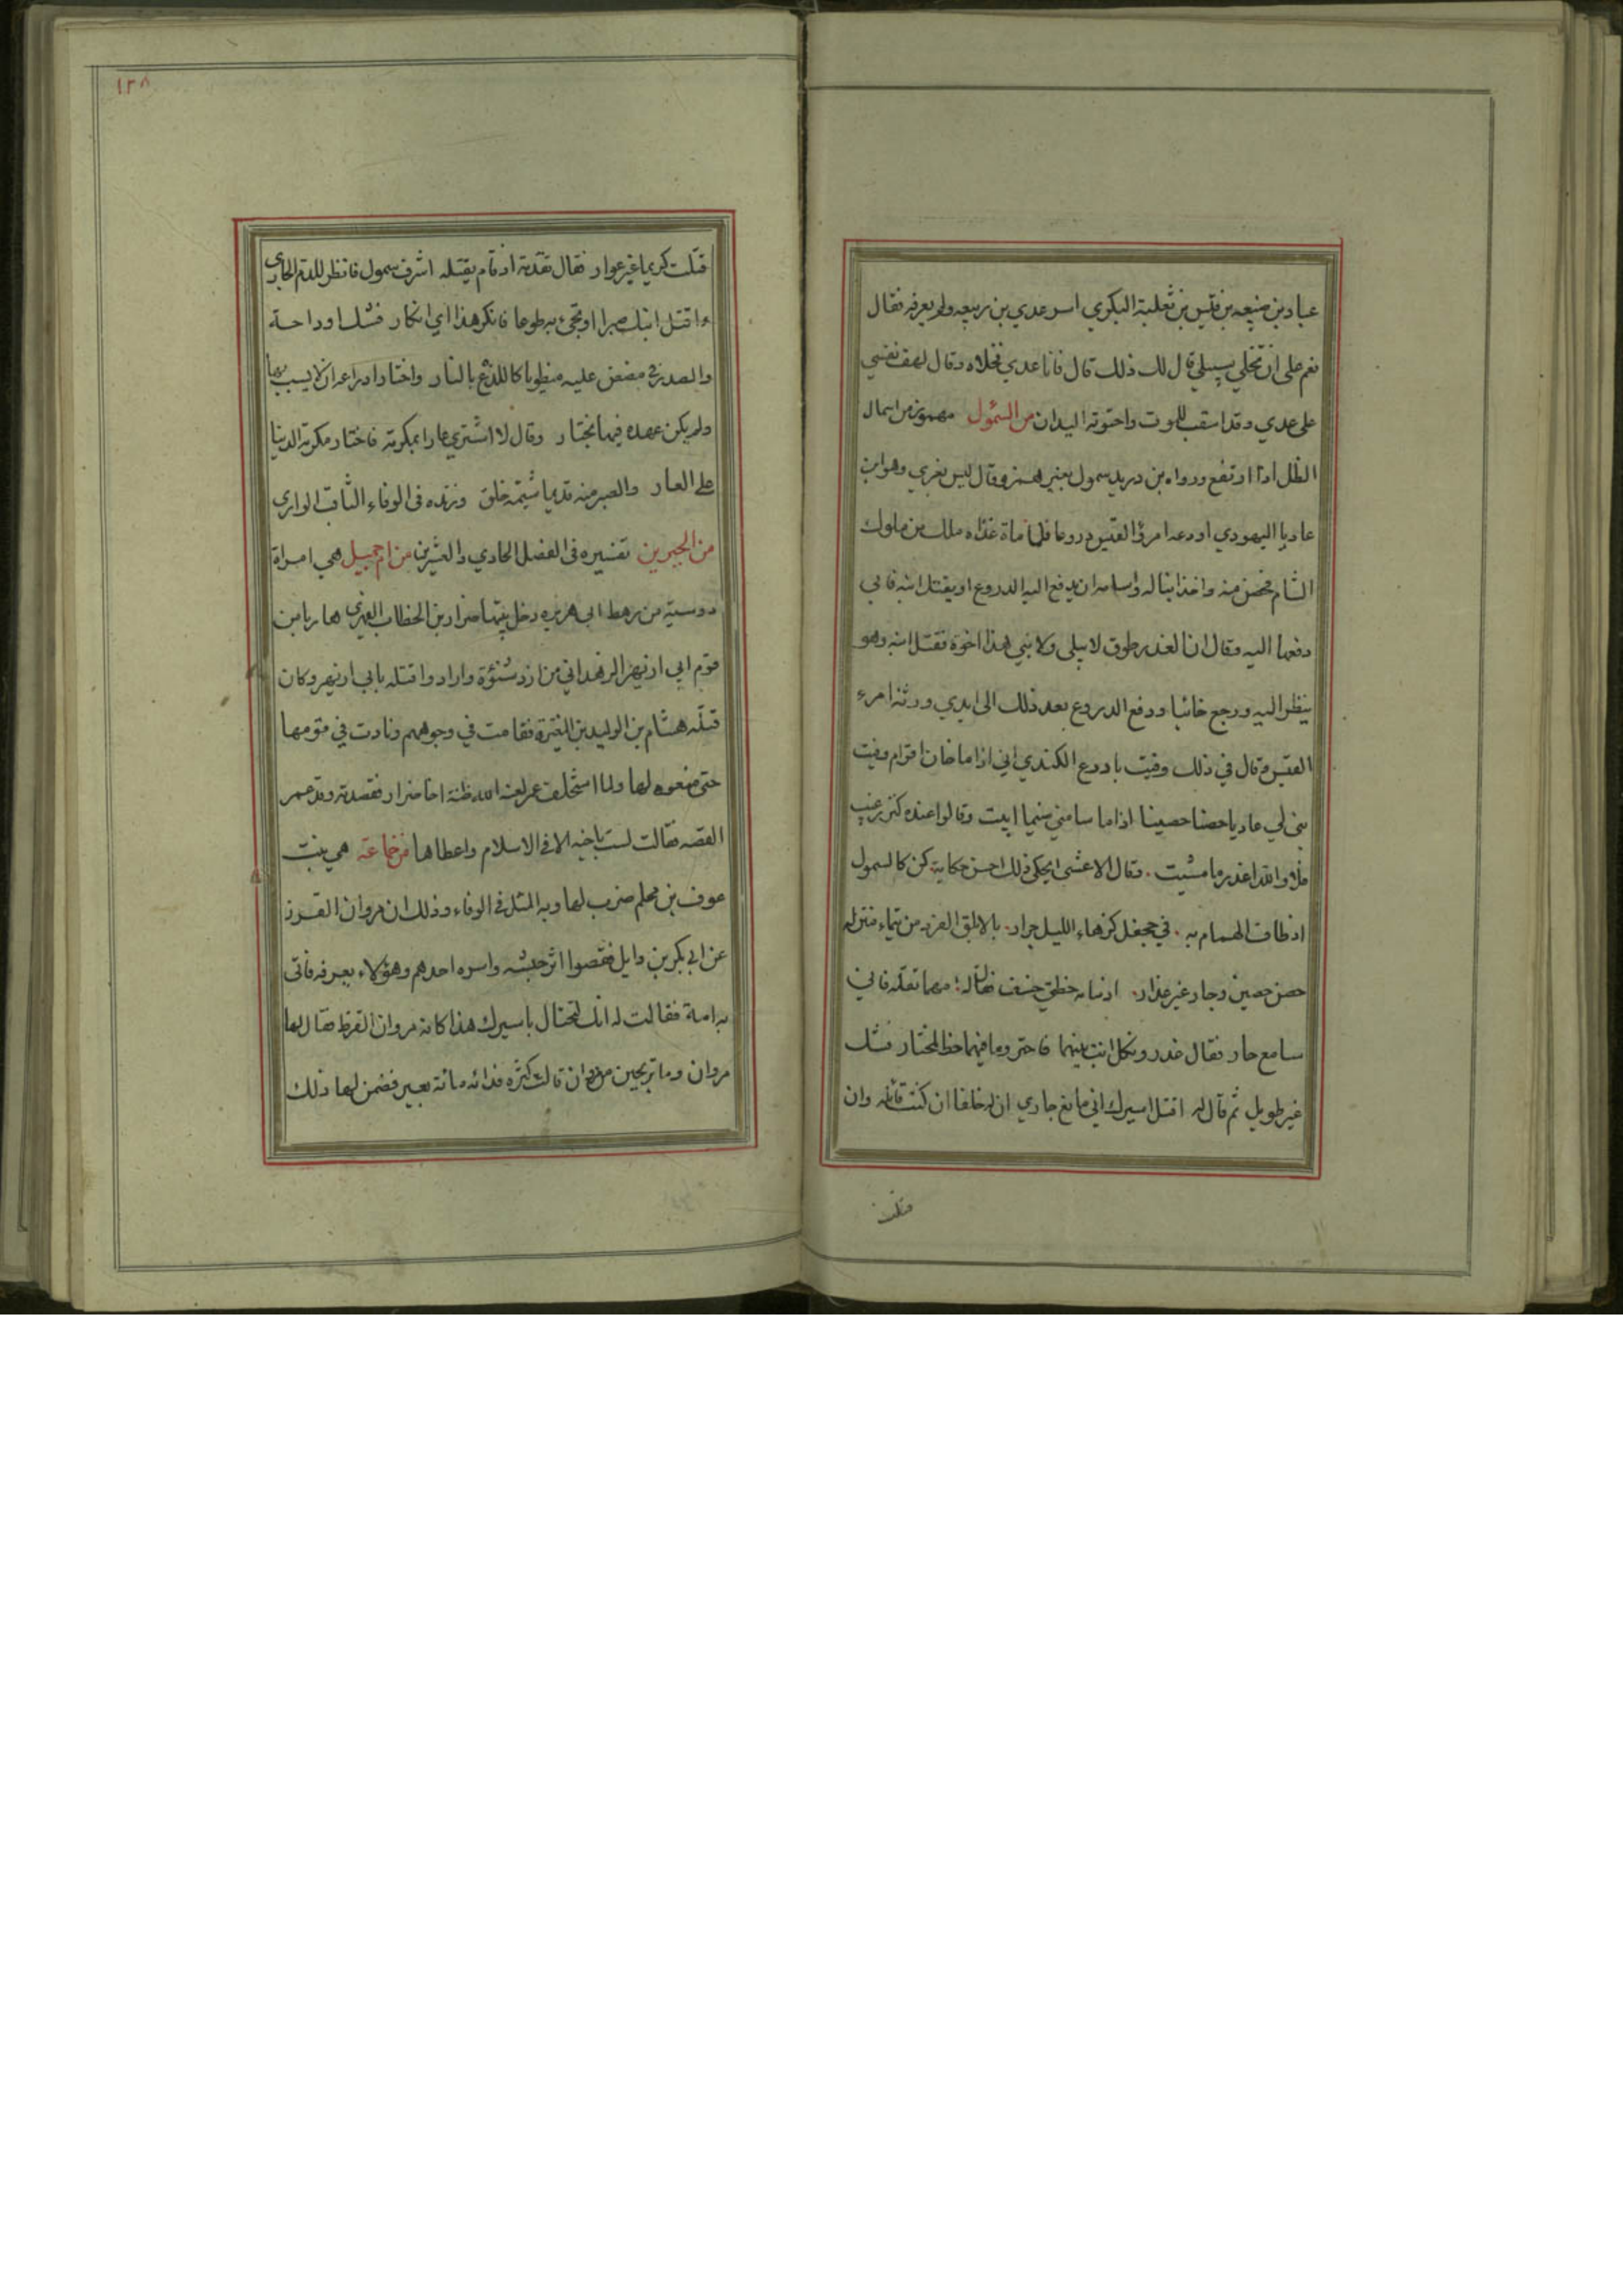 عباد بن ضبيعه بن قيس بن ثعلبة البكري اسر عدي بن ربيعه ولم يعرفه فقال
نعم على ان تخلي سبيلي قال لك ذلك قال فانا عدي فخلاه وقال لهف نفسي
على عدي وقد اسقب للموت واحتوته اليدان من السمؤل مهموز من اسمال
الظل اذا ارتفع ورواه بن دريد سمول بغير همز وقال ليس بعربي وهو ابن
عاديا اليهودي اودعه امرئ القيس دروعا فلما مات غزاه ملك من ملوك
الشام فتحصن منه واخذ ابنا له وسامه ان يدفع اليه الدروع او يقتل ابنه فابى
دفعها اليه وقال ان الغدر طوق لا يبلى ولابني هذا اخوة فقتل ابنه وهو
ينظر اليه ورجع خائبا ودفع الدروع بعد ذلك الى ايدي ورثة امرء
القيس وقال في ذلك وفيت بادرع الكندي اني اذا ما خان اقوام وفيت
بنى لي عاديا حصنا حصينا اذا ما سامني ضيما ابيت وقالوا عنده كنز رغيب
فلا والله اغدر ما مشيت . وقال الاعشى يحكي ذلك احسن حكاية كن كالسمول
اذ طاف الهمام به . في جحفل كزهاء الليل جرار . بالابلق الفرد من تيماء منزله
حصن حصين وجار غير غدار . اذ سامه خطتي خسف فقال له : مهما تقله فاني
سامع حار فقال غدر وثكل انت بينهما فاختر وما فيهما حظ لمختار فشك
غير طويل ثم قال له اقتل اسيرك اني مانع جاري ان له خلفا ان كنت قاتله وان
قتلت
١٣٨
قتلت كريما غير عوار فقال تقدمة اذ قام يقتله اشرف سمول فانظر للدم الجاري
ءاقتل ابنك صبرا او تجيء به طوعا فانكر هذا اي انكار فشك اوداجه
والصدر في مضض عليه منطويا كاللذع بالنار واختار ادراعه ان لا يسب بها
ولم يكن عهده فيها بختار وقال لا اشتري عارا بمكرمة فاختار مكرمة الدنيا
على العار والصبر منه قديما شيمة خلق وزنده في الوفاء الثاقب الواري
من الجيرين تفسيره في الفصل الحادي والعشرين من ام جميل هي امراة
دوسية من رهط ابي هريره دخل بيتها ضرار بن الخطاب الفهري هاربا من
قوم ابي ازيهر الزهداني من ازد شنؤة وارادوا قتله بابي ازيهر وكان
قتله هشام بن الوليد بن المغيرة فقامت في وجوههم ونادت في قومها
حتى منعوه لها ولما استخلف عمر ظنته اخا ضرار فقصدته وقد عمر
القصه فقالت لست باخيه الا في الاسلام واعطاها من خماعة هي بنت
عوف بن محلم ضرب لها وبه المثل في الوفاء وذلك ان مروان القرظ
غزا بكر بن وايل فقصوا اثر جيشه واسره احدهم وهو لا يعرفه فاتى
به امه فقالت له انك لتختال باسيرك هذا كانه مروان القرظ فقال لها
مروان وما ترتجين من مروان قالت كثرة فدائه مائة بعير فضمن لها ذلك